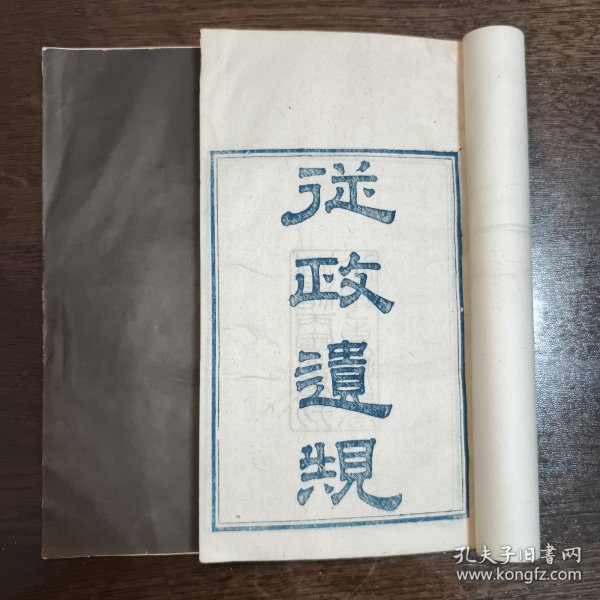 従政遺規
孔夫子旧書网
www.kongfz.com